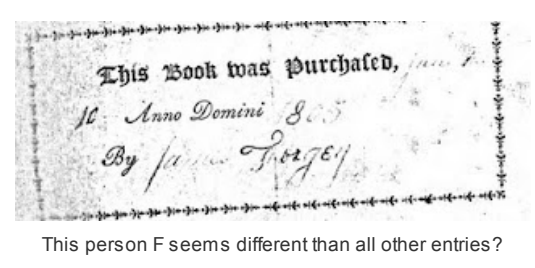 This Book was Purchaſed, June
10 Anno Domini 1805
By James Forgey
This person F seems different than all other entries?